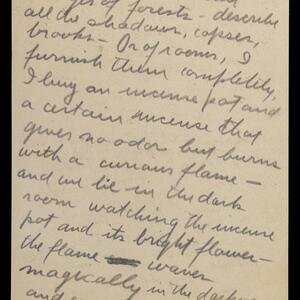 of forests - describe
all the shadows, copses,
brooks - Or of rooms, I
furnish them completely,
I buy an incense pot and
a certain incense that
gives no odor but burns
with a curious flame -
and we lie in the dark
room watching the incense
pot and its bright flower -
the flame waver
magically in the darkness